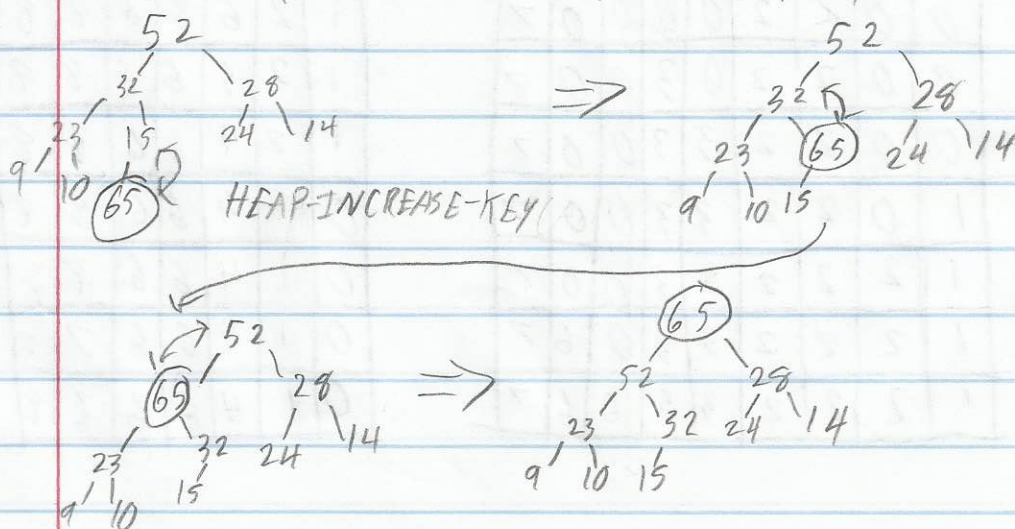 52
32 28
23 15 24 14
9 10 65
HEAP-INCREASE-KEY
52
32 28
23 65 24 14
9 10 15
52
65 28
23 32 24 14
9 10 15
65
52 28
23 32 24 14
9 10 15